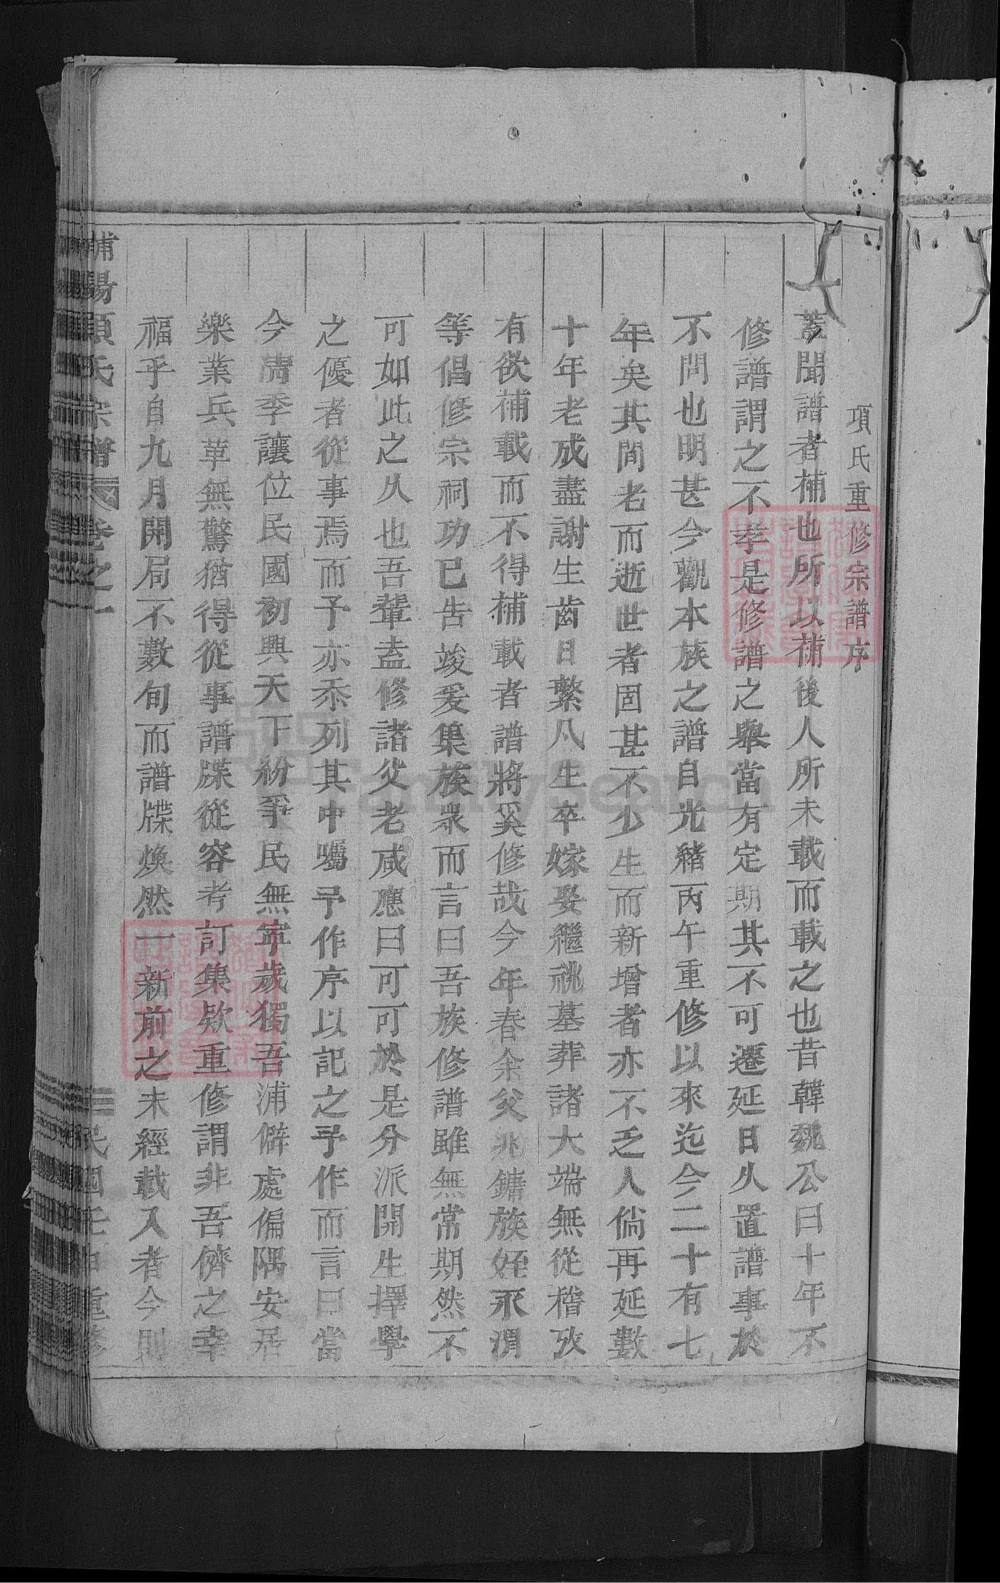 項氏重修宗譜序
蓋聞譜者補也所以補後人所未載而載之也昔韓魏公曰十年不
修譜謂之不孝是修譜之舉當有定期其不可遷延日久置譜事於
不問也明甚今觀本族之譜自光緒丙午重修以來迄今二十有七
年矣其間老而逝世者固甚不少生而新增者亦不乏人倘再延數
十年老成盡謝生齒日繫凡生卒嫁娶繼祧墓葬諸大端無從稽攷
有欲補載而不得補載者譜將奚修哉今年春余父兆鏞族姪永渭
等倡修宗祠功已告竣爰集族衆而言曰吾族修譜雖無常期然不
可如此之久也吾輩盍修諸父老咸應曰可可於是分派開生擇學
之優者從事焉而予亦忝列其中囑予作序以記之予作而言曰當
今淸季讓位民國初興天下紛爭民無寧歲獨吾浦僻處偏隅安居
樂業兵革無驚猶得從事譜牒從容考訂集欵重修謂非吾儕之幸
福乎自九月開局不數旬而譜牒煥然一新前之未經載入者今則
浦陽項氏宗譜 卷之一 民國壬申重修
FamilySearch